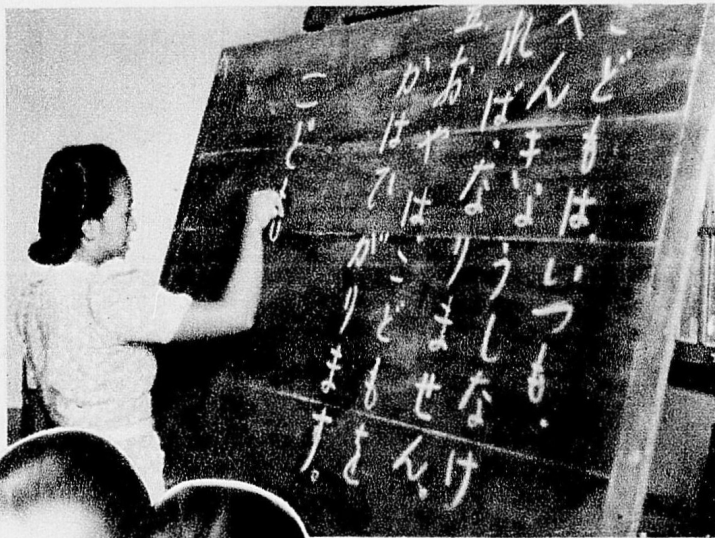 こどもは、いつも、
べんきやうしなけ
ればなりません。
五 おやは、こどもを
かはひがります。
こども